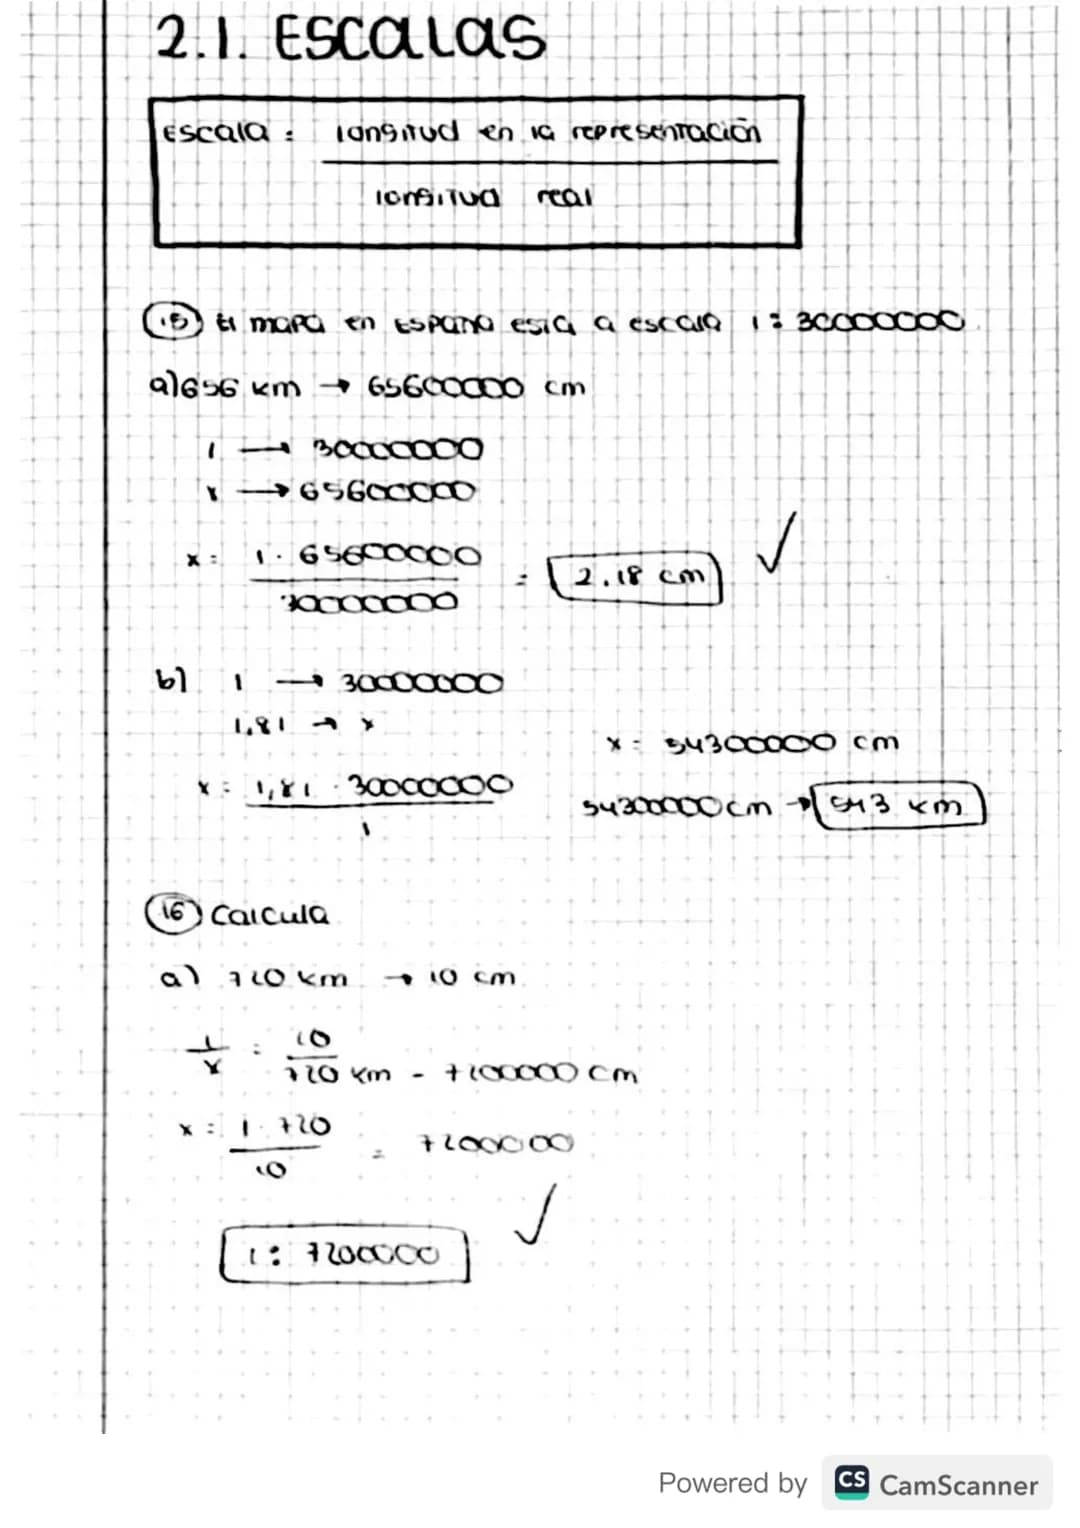 2.1. ESCALAS
Escala: longitud en la representación
longitud real
15 El mapa en España está a escala 1:30000000.
a) 656 km → 65600000 cm
1 → 30000000
x → 65600000
x = 1 · 65600000
30000000
= 2.18 cm ✓
b) 1 → 30000000
1,81 → x
x = 54300000 cm
x = 1,81 · 30000000
1
54300000 cm → 543 km
16 Calcula
a) 720 km → 10 cm
1 = 10
x 720 km - 72000000 cm
x = 1 · 720
10
= 7200000
1: 7200000 ✓
Powered by CS CamScanner